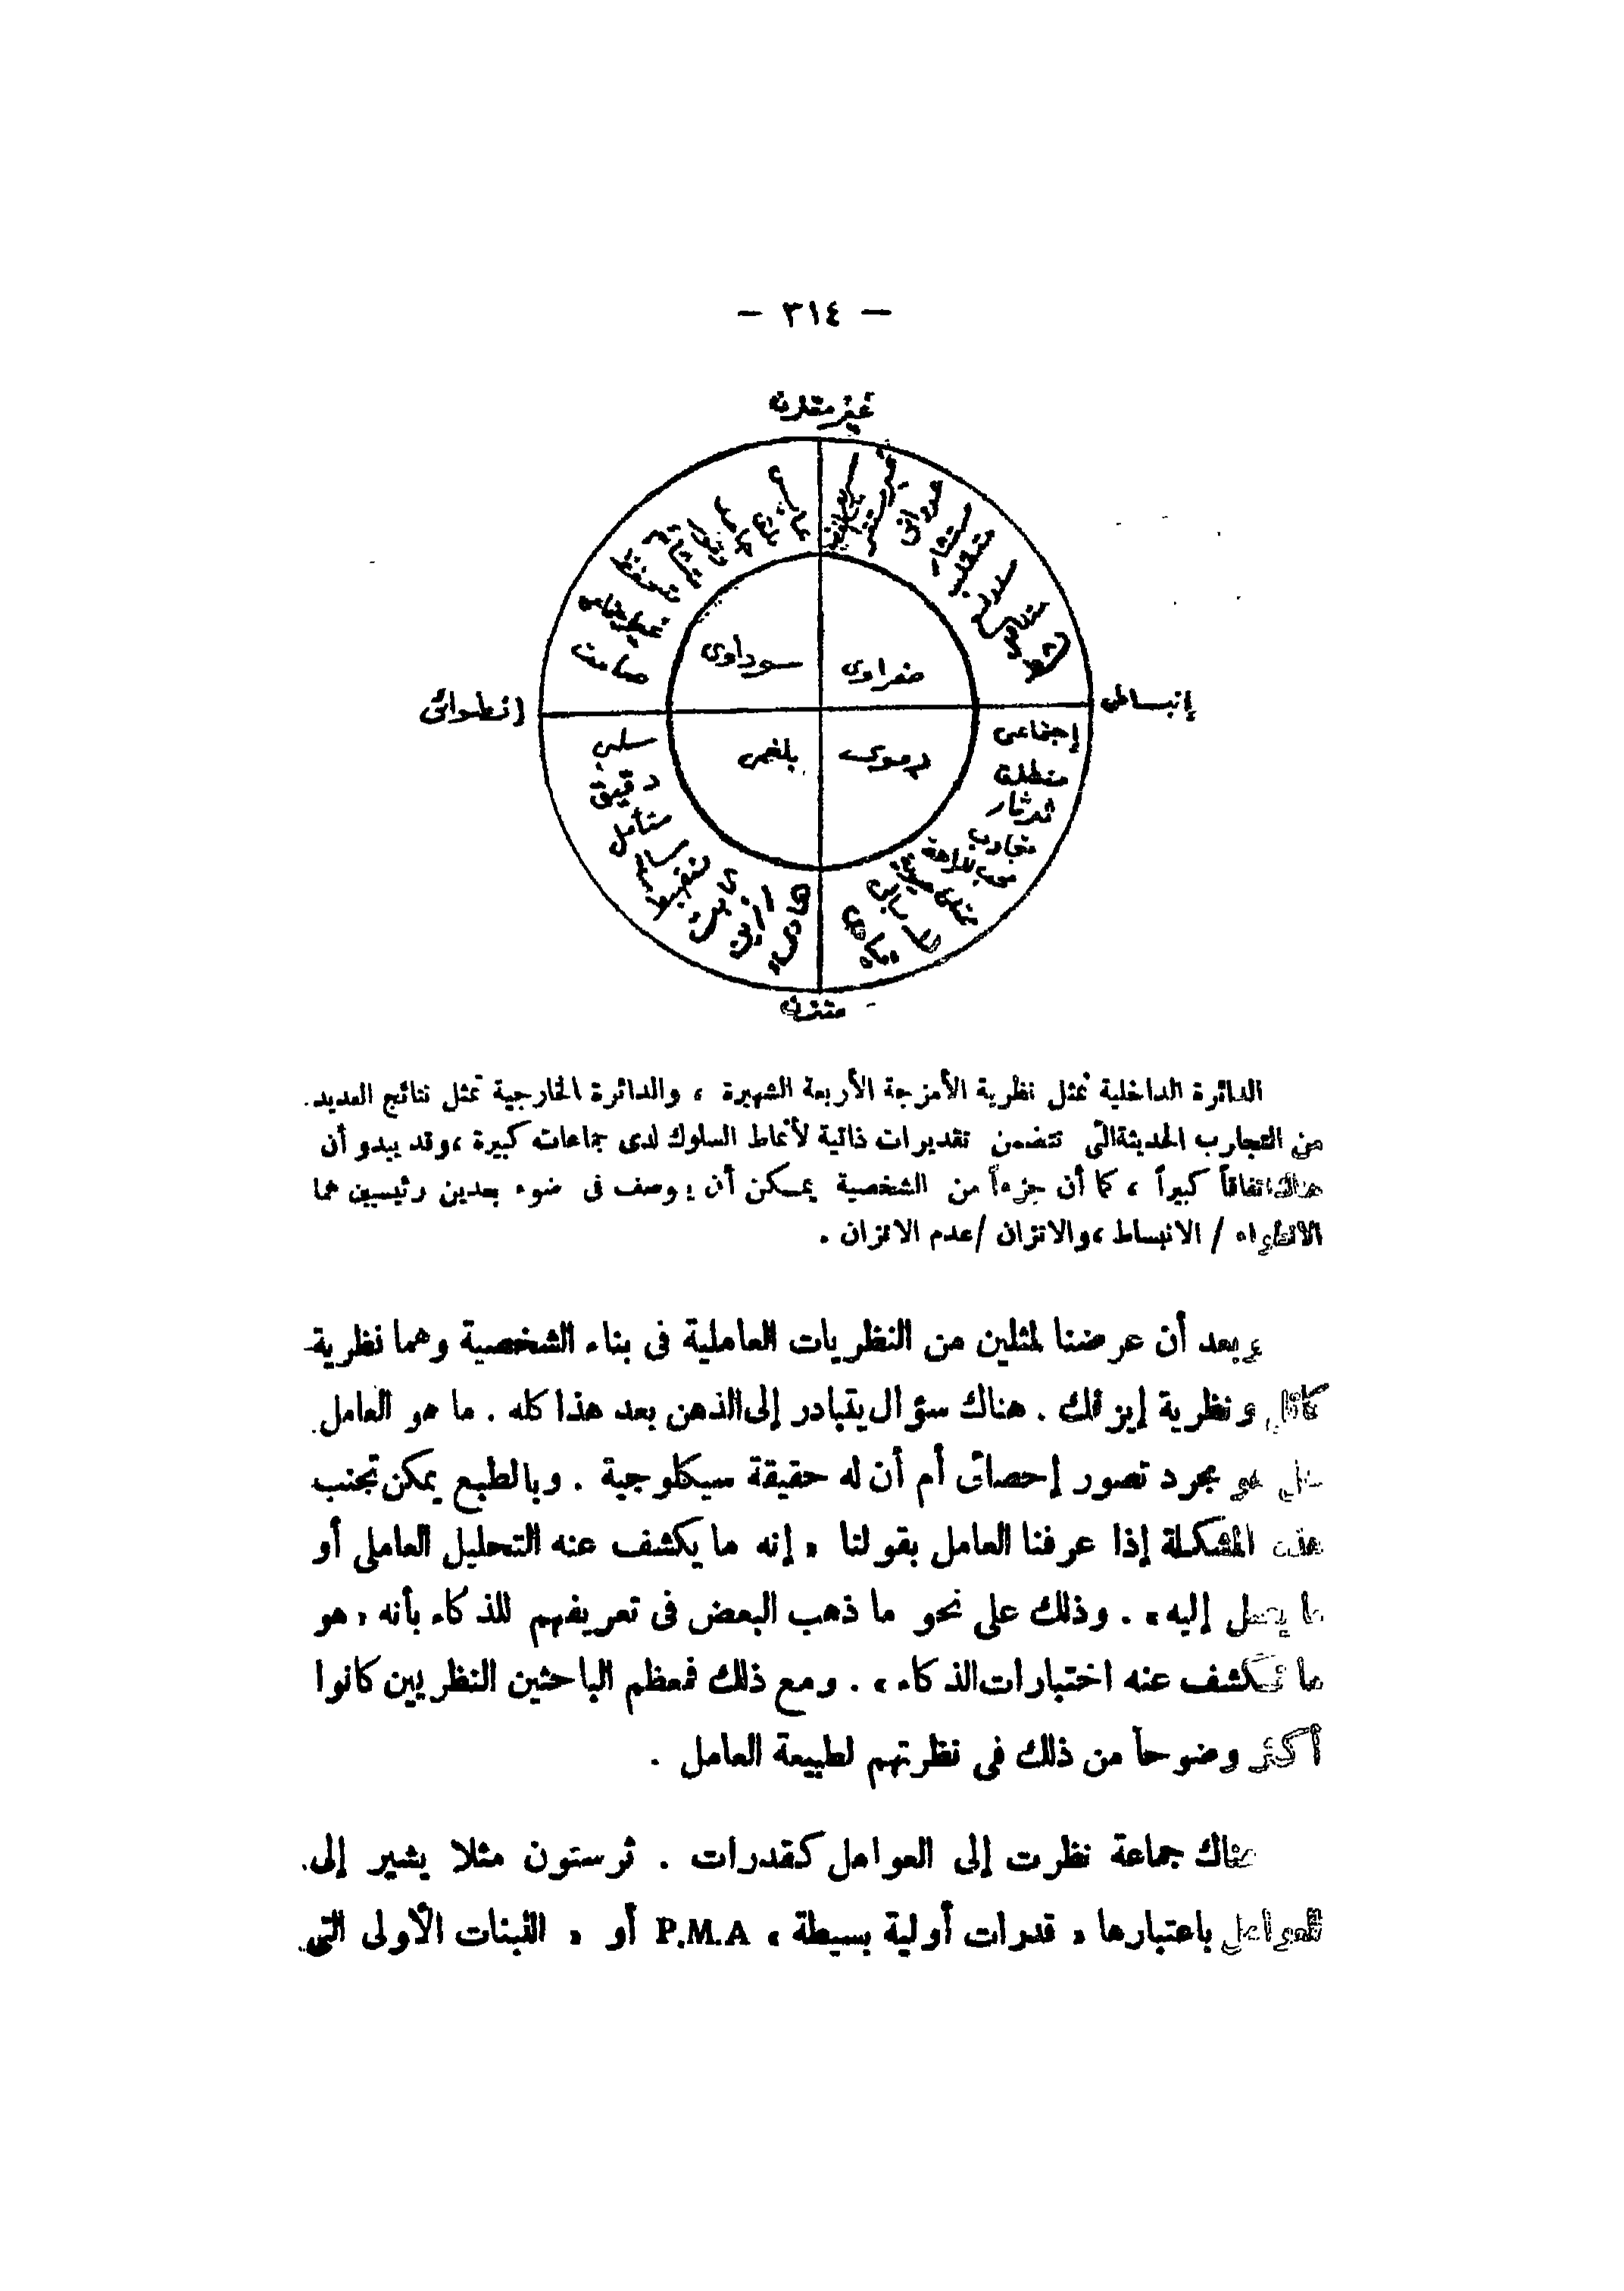 — ٣١٤ —
غير متزن
غير مستقر
عدوانى
مستثار
متقلب
متفائل
نشط
صامت
سوداوى
صفراوى
انطوائى
إنبساطى
سلبى
دقيق
متأمل
بلغمى
دموى
إجتماعى
منطلق
ثرثار
متجاوب
محب للراحة
هادىء
متزن
الدائرة الداخلية تمثل نظرية الأمزجة الأربعة الشهيرة ، والدائرة الخارجية تمثل نتائج العديد
من التجارب الحديثة التى تتضمن تقديرات ذاتية لأنماط السلوك لدى جماعات كبيرة ، وقد يبدو أن
هناك اتفاقاً كبيراً ، كما أن جزءاً من الشخصية يمكن أن يوصف فى ضوء بعدين رئيسين هما
الانطواء / الانبساط ، والاتزان / عدم الاتزان .
وبعد أن عرضنا لمثلين من النظريات العاملية فى بناء الشخصية وهما نظرية
كاتل ونظرية إيزنك . هناك سؤال يتبادر إلى الذهن بعد هذا كله . ما هو العامل
هل هو مجرد تصور إحصائى أم أن له حقيقة سيكلوجية . وبالطبع يمكن تجنب
هذه المشكلة إذا عرفنا العامل بقولنا « إنه ما يكشف عنه التحليل العاملى أو
ما يصل إليه » . وذلك على نحو ما ذهب البعض فى تعريفهم للذكاء بأنه « هو
ما تكشف عنه اختبارات الذكاء » . ومع ذلك فمعظم الباحثين النظريين كانوا
أكثر وضوحاً من ذلك فى نظرتهم لطبيعة العامل .
هناك جماعة نظرت إلى العوامل كقدرات . ثرستون مثلا يشير إلى
العوامل باعتبارها « قدرات أولية بسيطة » P.M.A أو « اللبنات الأولى التى